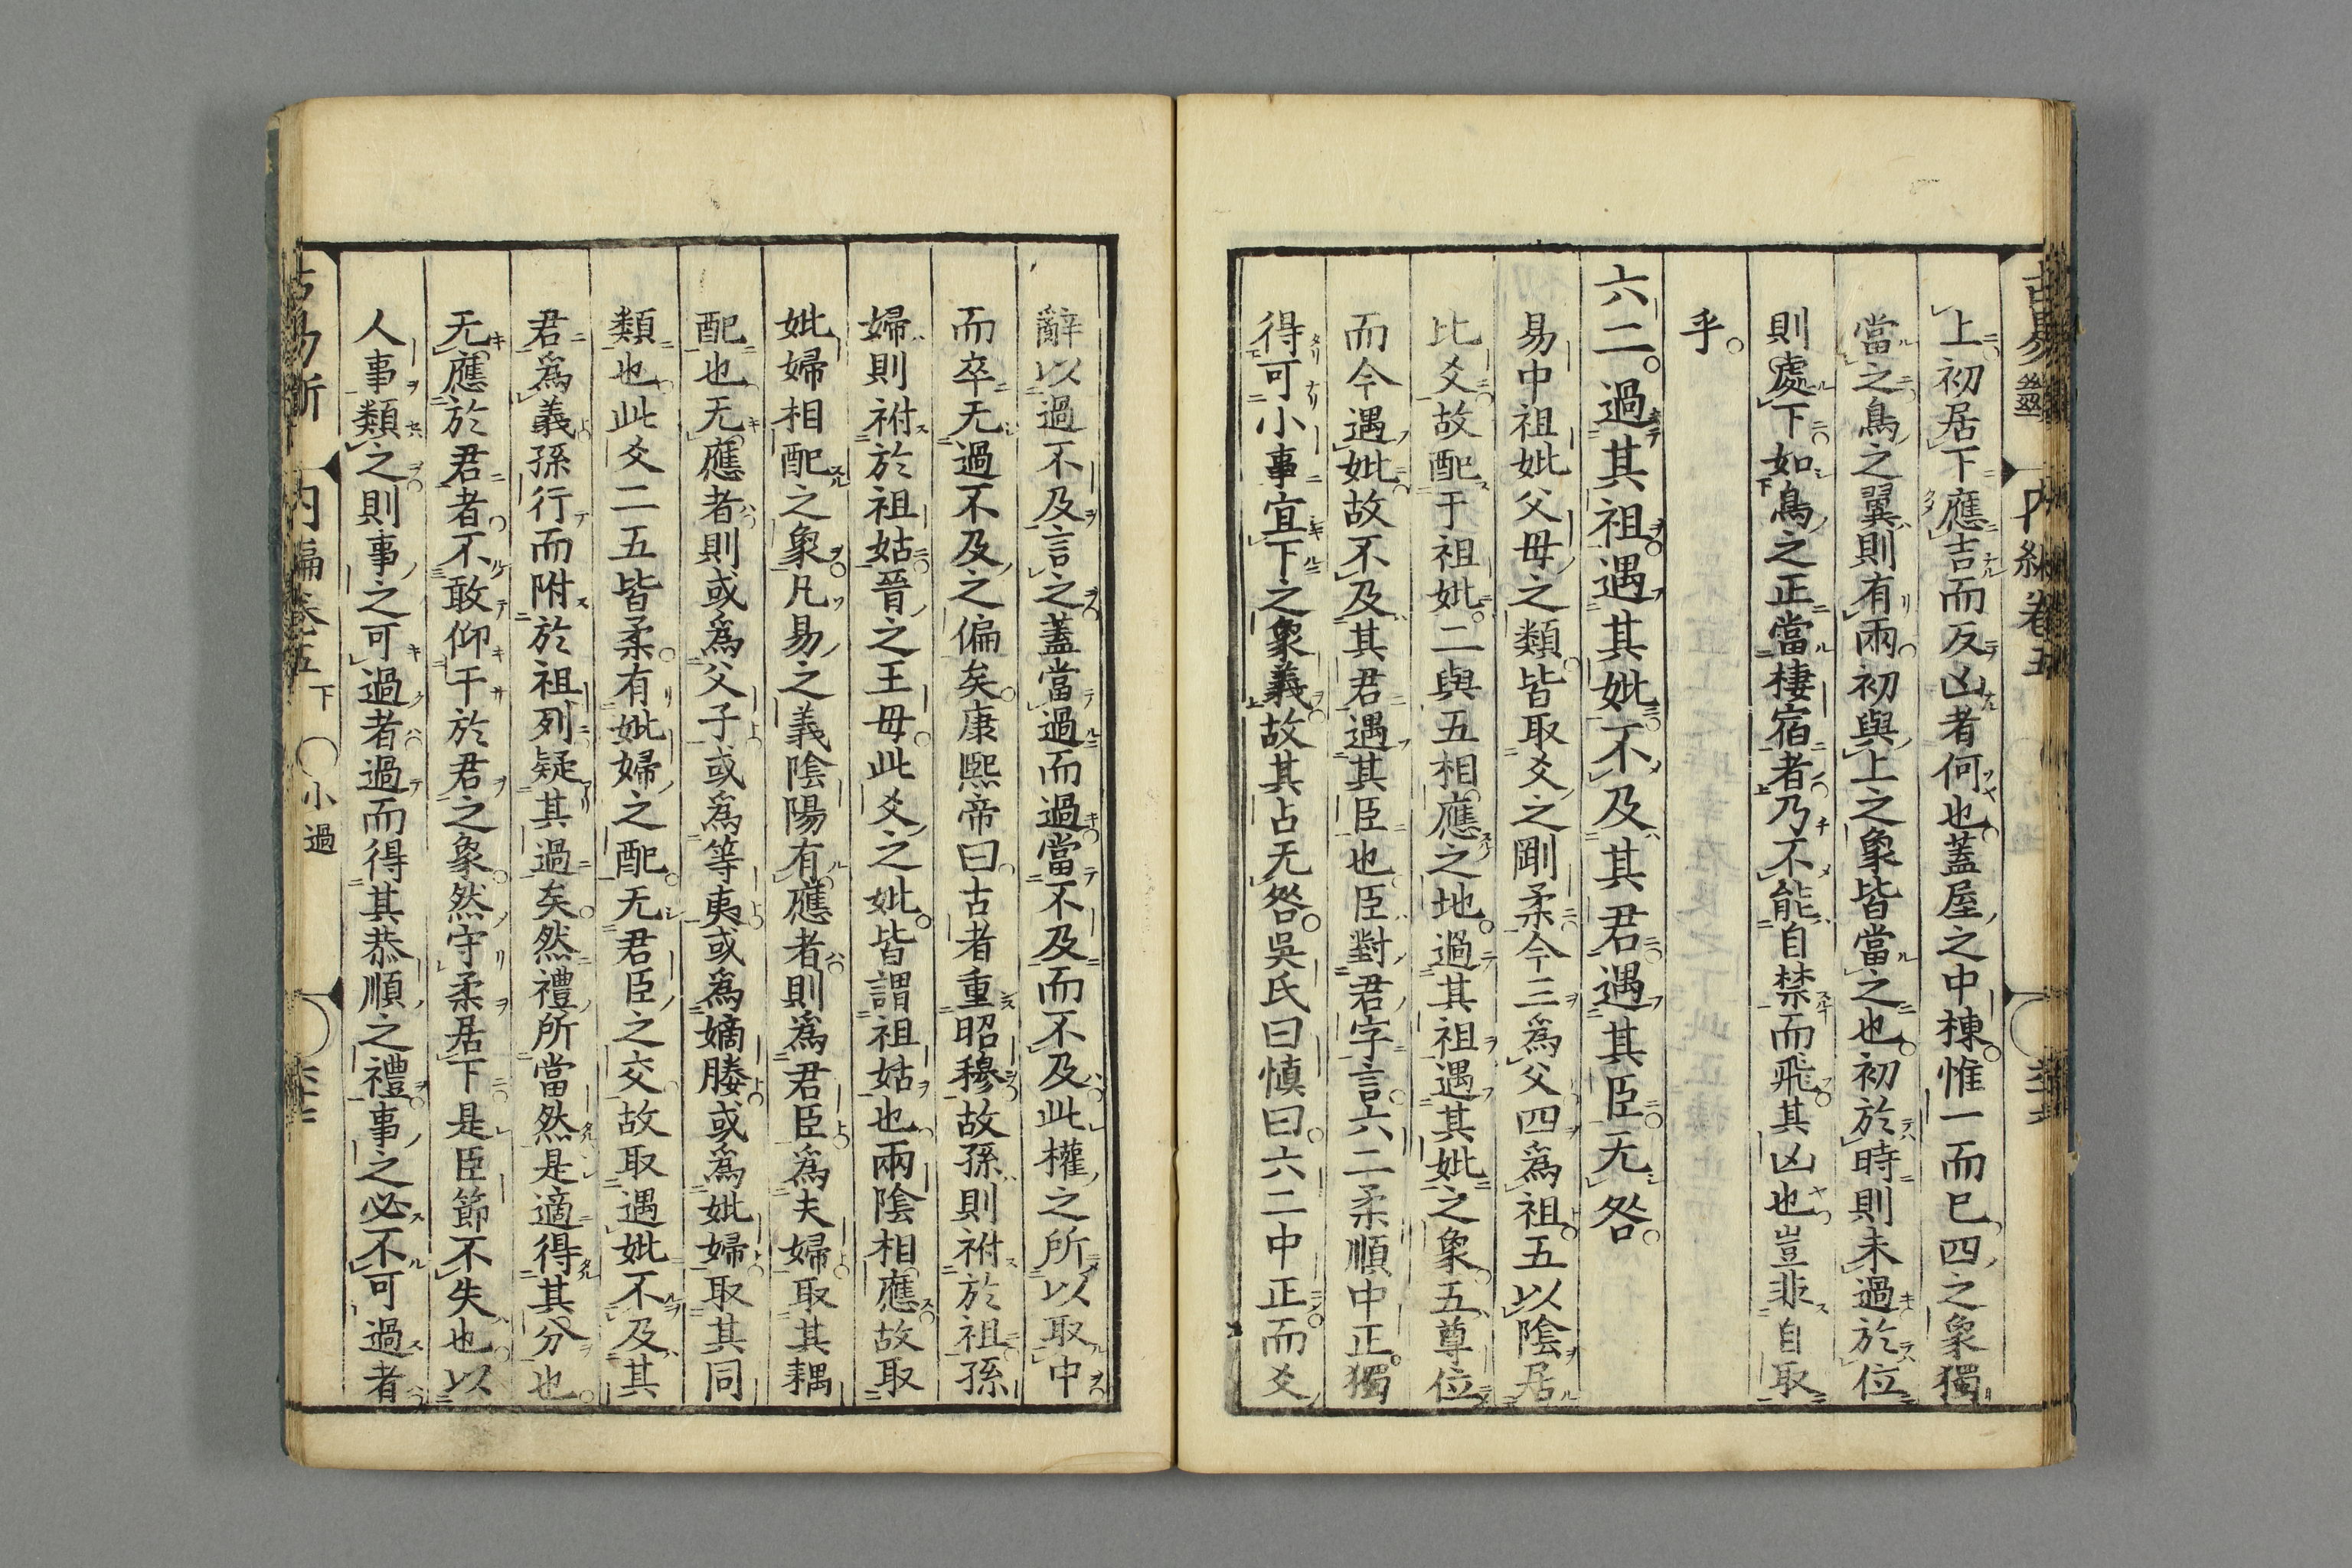 上初居下應吉而反凶者何也蓋屋之中棟惟一而已四之象獨
當之鳥之翼則有兩初與上之象皆當之也初於時則未過於位
則處下如鳥之正當棲宿者乃不能自禁而飛其凶也豈非自取
乎
六二過其祖遇其妣不及其君遇其臣无咎
易中祖妣父母之類皆取爻之剛柔今三為父四為祖五以陰居
比爻故配于祖妣二與五相應之地過其祖遇其妣之象五尊位
而今遇妣故不及其君遇其臣也臣對君字言六二柔順中正獨
得可小事宜下之象義故其占无咎吳氏曰慎曰六二中正而爻
辭以過不及言之蓋當過而過當不及而不及此權之所以取中
而卒无過不及之偏矣康熙帝曰古者重昭穆故孫則祔於祖孫
婦則祔於祖姑晉之王母此爻之妣皆謂祖姑也兩陰相應故取
妣婦相配之象凡易之義陰陽有應者則為君臣為夫婦取其耦
配也无應者則或為父子或為等夷或為嫡媵或為妣婦取其同
類也此爻二五皆柔有妣婦之配无君臣之交故取遇妣不及其
君為義孫行而附於祖列疑其過矣然禮所當然是適得其分也
无應於君者不敢仰干於君之象然守柔居下是臣節不失也以
人事類之則事之可過者過而得其恭順之禮事之必不可過者
古易斷 內編卷五下 小過